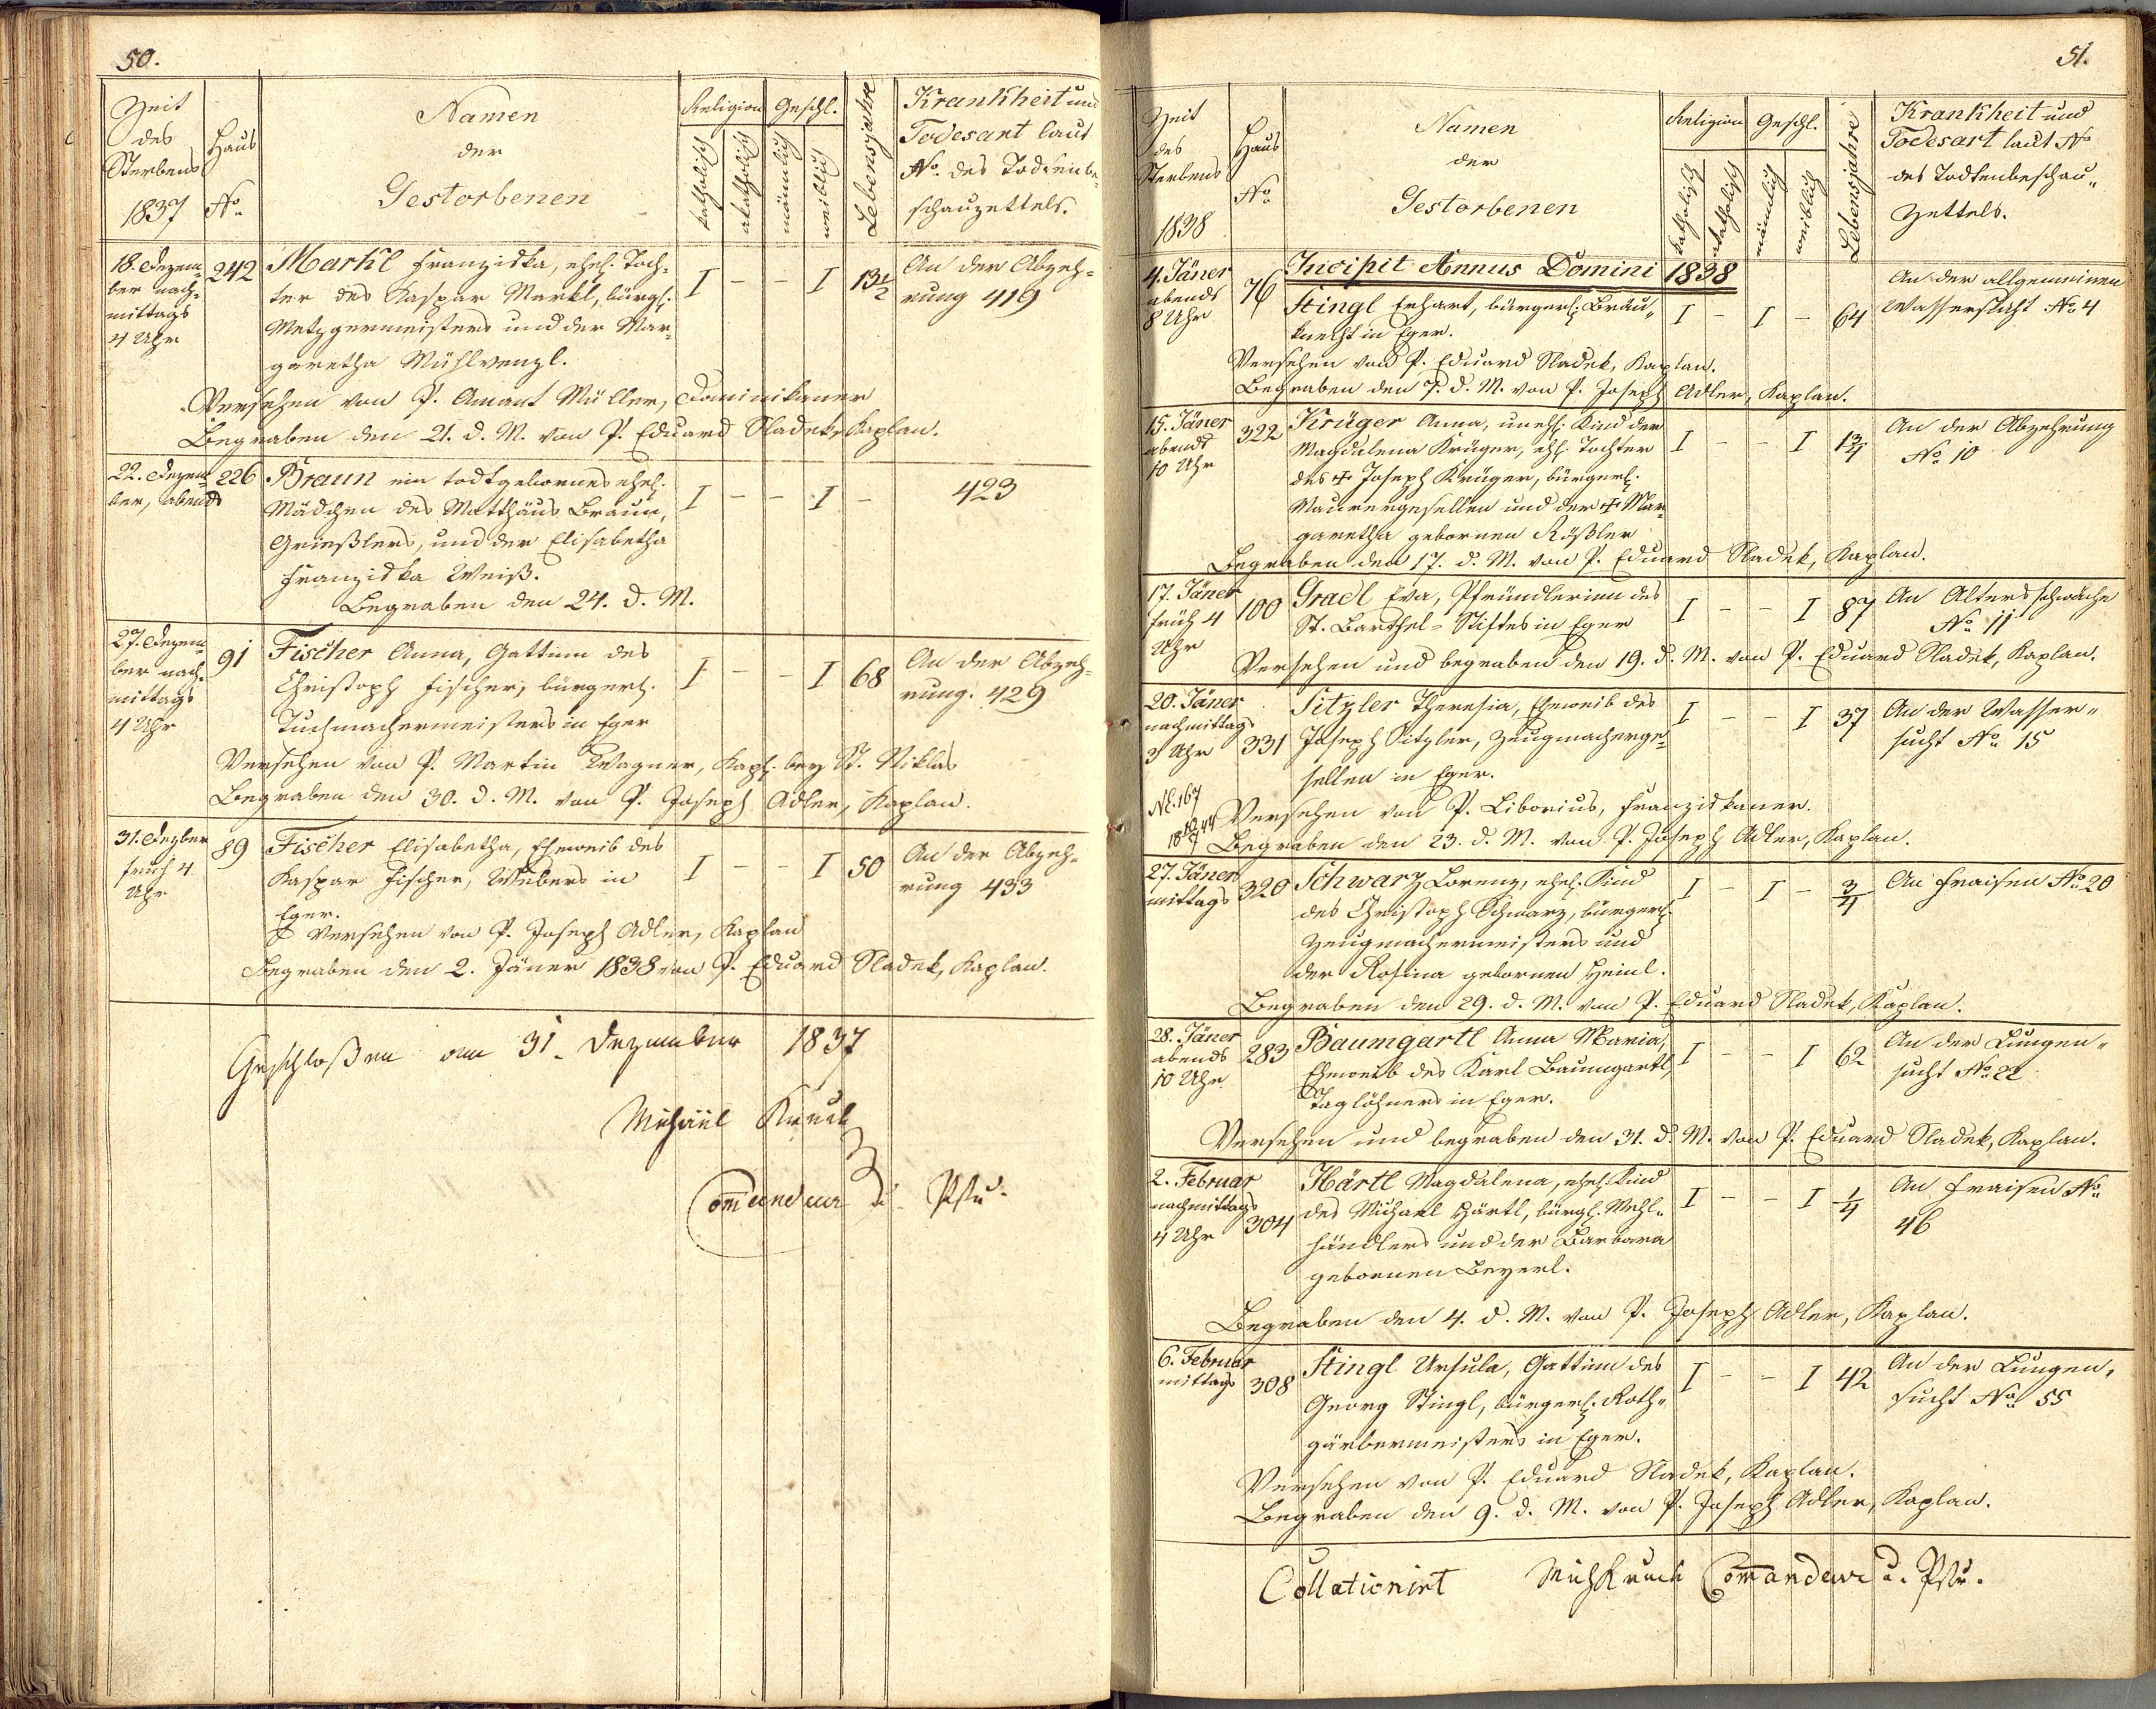 50.
Zeit des Sterbens 1837
Haus No
Namen der Gestorbenen
Religion
katholisch
akatholisch
Geschl.
männlich
weiblich
Lebensjahre
Krankheit und
Todesart laut
No. des Todtenbe-
schauzettels.
18. Dezem-
ber nach-
mittags
4 Uhr
242
Markl Franziska, ehel. Toch-
ter des Kaspar Markl, bürgl.
Metzgermeisters und der Mar-
garetha Mühlvenzl.
I - - I 13 1/2
An der Abzeh-
rung 419
Versehen von P. Amant Müller, Dominikaner
Begraben den 21. d. M. von P. Eduard Sladek, Kaplan.
22. Dezem-
ber, abends
226
Braun ein todtgebornes ehel.
Mädchen des Matthäus Braun,
Grießlers, und der Elisabetha
Franziska Weiß.
I - - I -
423
Begraben den 24. d. M.
27. Dezem-
ber nach-
mittags
4 Uhr
91
Fischer Anna, Gattinn des
Christoph Fischer, bürgerl.
Tuchmachermeisters in Eger
I - - I 68
An der Abzeh-
rung. 429
Versehen von P. Martin Wagner, Kapl. bey St. Niklas
Begraben den 30. d. M. von P. Joseph Adler, Kaplan.
31. Dezber
früh 4
Uhr
89
Fischer Elisabetha, Eheweib des
Kaspar Fischer, Webers in
Eger.
I - - I 50
An der Abzeh-
rung 433
Versehen von P. Joseph Adler, Kaplan
Begraben den 2. Jäner 1838 von P. Eduard Sladek, Kaplan.
Geschloßen am 31. Dezember 1837
Michael
Comandeur u.
51.
Zeit des Sterbens 1838
Haus No
Namen der Gestorbenen
Religion
katholisch
akatholisch
Geschl.
männlich
weiblich
Lebensjahre
Krankheit und
Todesart laut No
des Todtenbeschau-
Zettels.
Incipit Annus Domini 1838
4. Jäner
abends
8 Uhr
76
Stingl Erhart, bürgerl. Bräu-
knecht in Eger.
I - I - 64
An der allgemeinen
Wassersucht No 4
Versehen von P. Eduard Sladek, Kaplan.
Begraben den 7. d. M. von P. Joseph Adler, Kaplan.
15. Jäner
abends
10 Uhr
322
Krüger Anna, unehl. Kind der
Magdalena Krüger, ehl. Tochter
des + Joseph Krüger, bürgerl.
Maurergesellen und der + Mar-
garetha gebornen Rößler
I - - I 1 3/4
An der Abzehrung
No 10
Begraben den 17. d. M. von P. Eduard Sladek, Kaplan.
17. Jäner
früh 4
Uhr
100
Gradl Eva, Pfründlerinn des
St. Barthel-Stiftes in Eger
I - - I 87
An Altersschwäche
No 11
Versehen und begraben den 19. d. M. von P. Eduard Sladek, Kaplan.
20. Jäner
nachmittags
3 Uhr
331
Sitzler Theresia, Eheweib des
Joseph Sitzler, Zeugmacherge-
sellen in Eger.
I - - I 37
An der Wasser-
sucht No 15
Versehen von P. Liborius, Franziskaner.
Begraben den 23. d. M. von P. Joseph Adler, Kaplan.
27. Jäner
mittags
320
Schwarz Lorenz, ehel. Kind
des Christoph Schwarz, bürgerl.
Zeugmachermeisters und
der Rosina gebornen Heinl.
I - I - 3/4
An Fraisen No 20
Begraben den 29. d. M. von P. Eduard Sladek, Kaplan.
28. Jäner
abends
10 Uhr
283
Baumgartl Anna Maria,
Eheweib des Karl Baumgartl,
Taglöhners in Eger.
I - - I 62
An der Lungen-
sucht No 22
Versehen und begraben den 31. d. M. von P. Eduard Sladek, Kaplan.
2. Februar
nachmittags
4 Uhr
304
Härtl Magdalena, ehel. Kind
des Michael Härtl, bürgl. Mehl-
händlers und der Barbara
gebornen Beyerl.
I - - I 1/4
An Fraisen No
46
Begraben den 4. d. M. von P. Joseph Adler, Kaplan.
6. Februar
mittags
308
Stingl Ursula, Gattinn des
Georg Stingl, bürgerl. Roth-
gärbermeisters in Eger.
I - - I 42
An der Lungen-
sucht No 55
Versehen von P. Eduard Sladek, Kaplan.
Begraben den 9. d. M. von P. Joseph Adler, Kaplan.
Collationirt Comandeur u.